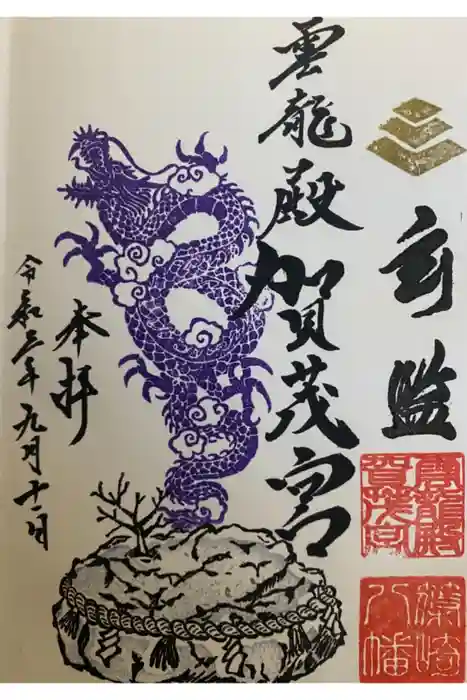 雲龍殿賀茂宮
奉拝
令和三年九月十一日
雲龍殿
賀茂宮
八幡